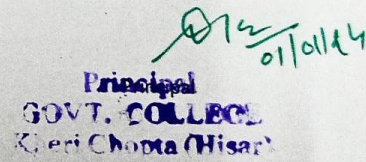 01/01/24
Principal
GOVT. COLLEGE
Kheri Chopta (Hisar)